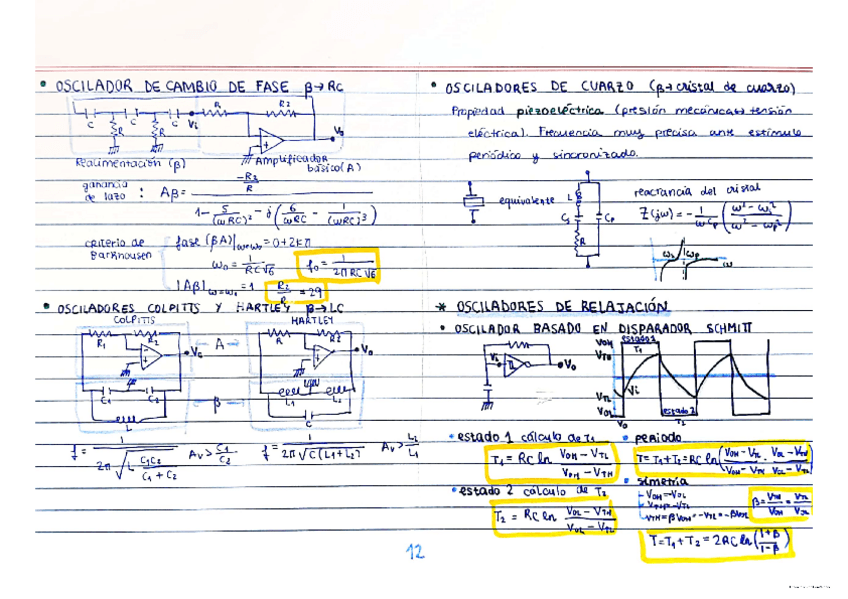 • OSCILADOR DE CAMBIO DE FASE β→RC
C C C Vi R R2
R R
Vo
Realimentación (β) Amplificador básico (A)
ganancia de lazo : Aβ = (-R2/R) / (1 - 5/(ωRC)² - j(6/ωRC - 1/(ωRC)³))
criterio de Barkhausen
fase (βA)|ω=ω0 = 0+2kπ
ω0 = 1/(RC√6) f0 = 1/(2πRC√6)
|Aβ|ω=ω0 = 1 R2/R = 29
• OSCILADORES COLPITTS Y HARTLEY β→LC
COLPITTS HARTLEY
R1 R2 Vo A R R2 Vo
C1 C2 β L1 L2
L C
f = 1/(2π√(L C1C2/(C1+C2))) Av > C1/C2 f = 1/(2π√(C(L1+L2))) Av > L2/L1
• OSCILADORES DE CUARZO (β→cristal de cuarzo)
Propiedad piezoeléctrica (presión mecánica↔tensión
eléctrica). Frecuencia muy precisa ante estímulo
periódico y sincronizado.
equivalente L Cs R Cp
reactancia del cristal
Z(jω) = -1/(ωCp) ((ω²-ωs²)/(ω²-ωp²))
ωs ωp ω
* OSCILADORES DE RELAJACIÓN
• OSCILADOR BASADO EN DISPARADOR SCHMITT
Vi Vo
VOH estado 1
VTH T1
VTL Vi
VOL estado 2
Vo T2
• estado 1 cálculo de T1
T1 = RC ln (VOH - VTL)/(VOH - VTH)
• estado 2 cálculo de T2
T2 = RC ln (VOL - VTH)/(VOL - VTL)
• periodo
T = T1+T2 = RC ln((VOH-VTL)/(VOH-VTH) · (VOL-VTH)/(VOL-VTL))
• simetría
- VOH=-VOL
- VTH=-VTL
- VTH=βVOH=-VTL=-βVOL
β = VTH/VOH = VTL/VOL
T=T1+T2 = 2RC ln((1+β)/(1-β))
12